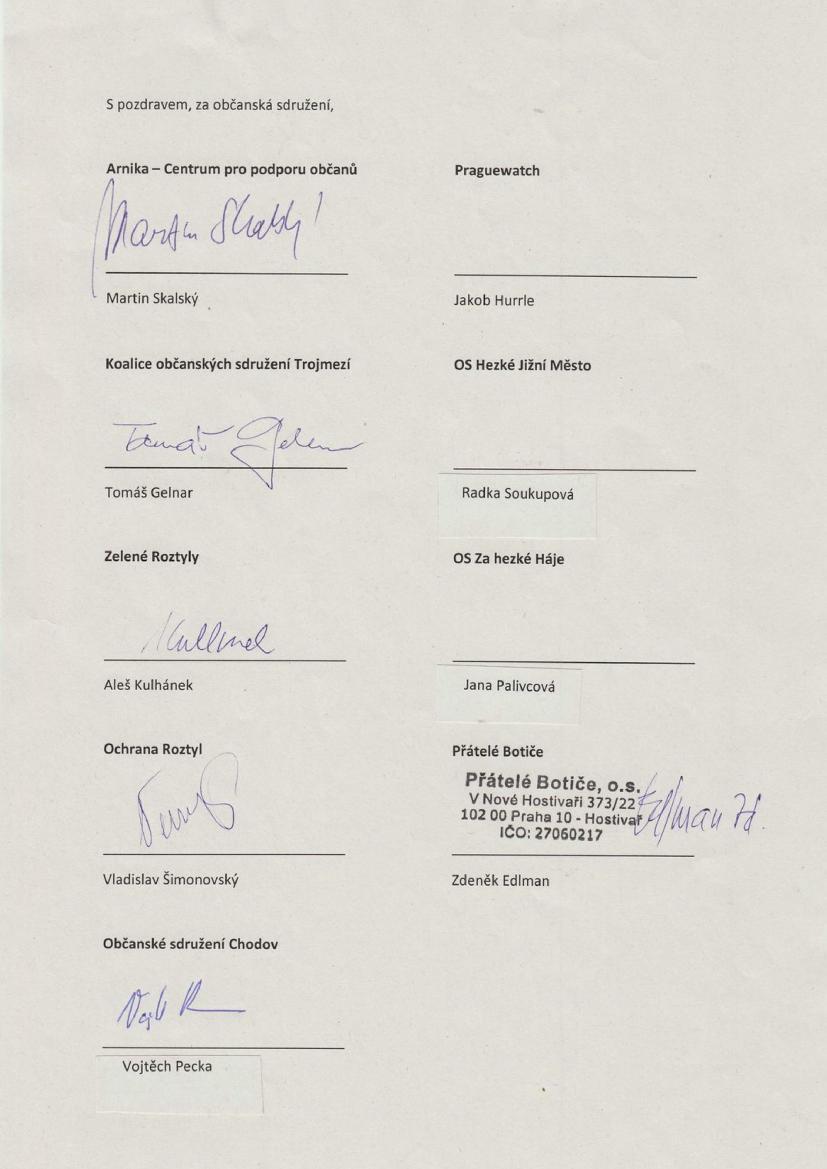 S pozdravem, za občanská sdružení,
Arnika – Centrum pro podporu občanů
Martin Skalský
Martin Skalský
Praguewatch
Jakob Hurrle
Koalice občanských sdružení Trojmezí
Tomáš Gelnar
Tomáš Gelnar
OS Hezké Jižní Město
Radka Soukupová
Zelené Roztyly
Aleš Kulhánek
OS Za hezké Háje
Jana Palivcová
Ochrana Roztyl
Vladislav Šimonovský
Přátelé Botiče
Přátelé Botiče, o.s.
V Nové Hostivaři 373/22
102 00 Praha 10 - Hostivař
IČO: 27060217
Edlman Zd.
Zdeněk Edlman
Občanské sdružení Chodov
Vojtěch Pecka